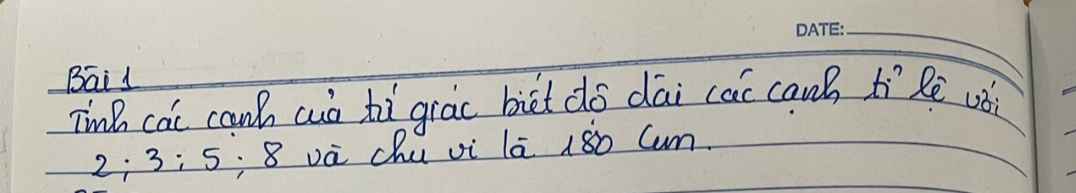 DATE:
Bài 1
Tính các cạnh của tứ giác biết độ dài các cạnh tỉ lệ với
2; 3; 5; 8 và chu vi là 180 cm.